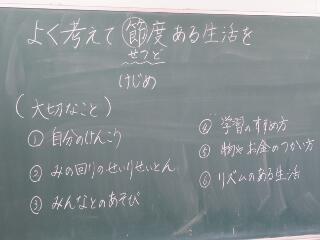 よく考えて節度ある生活を
せつど
けじめ
(大切なこと)
① 自分のけんこう
② みの回りのせいりせいとん
③ みんなとのあそび
④ 学習のすすめ方
⑤ 物やお金のつかい方
⑥ リズムのある生活